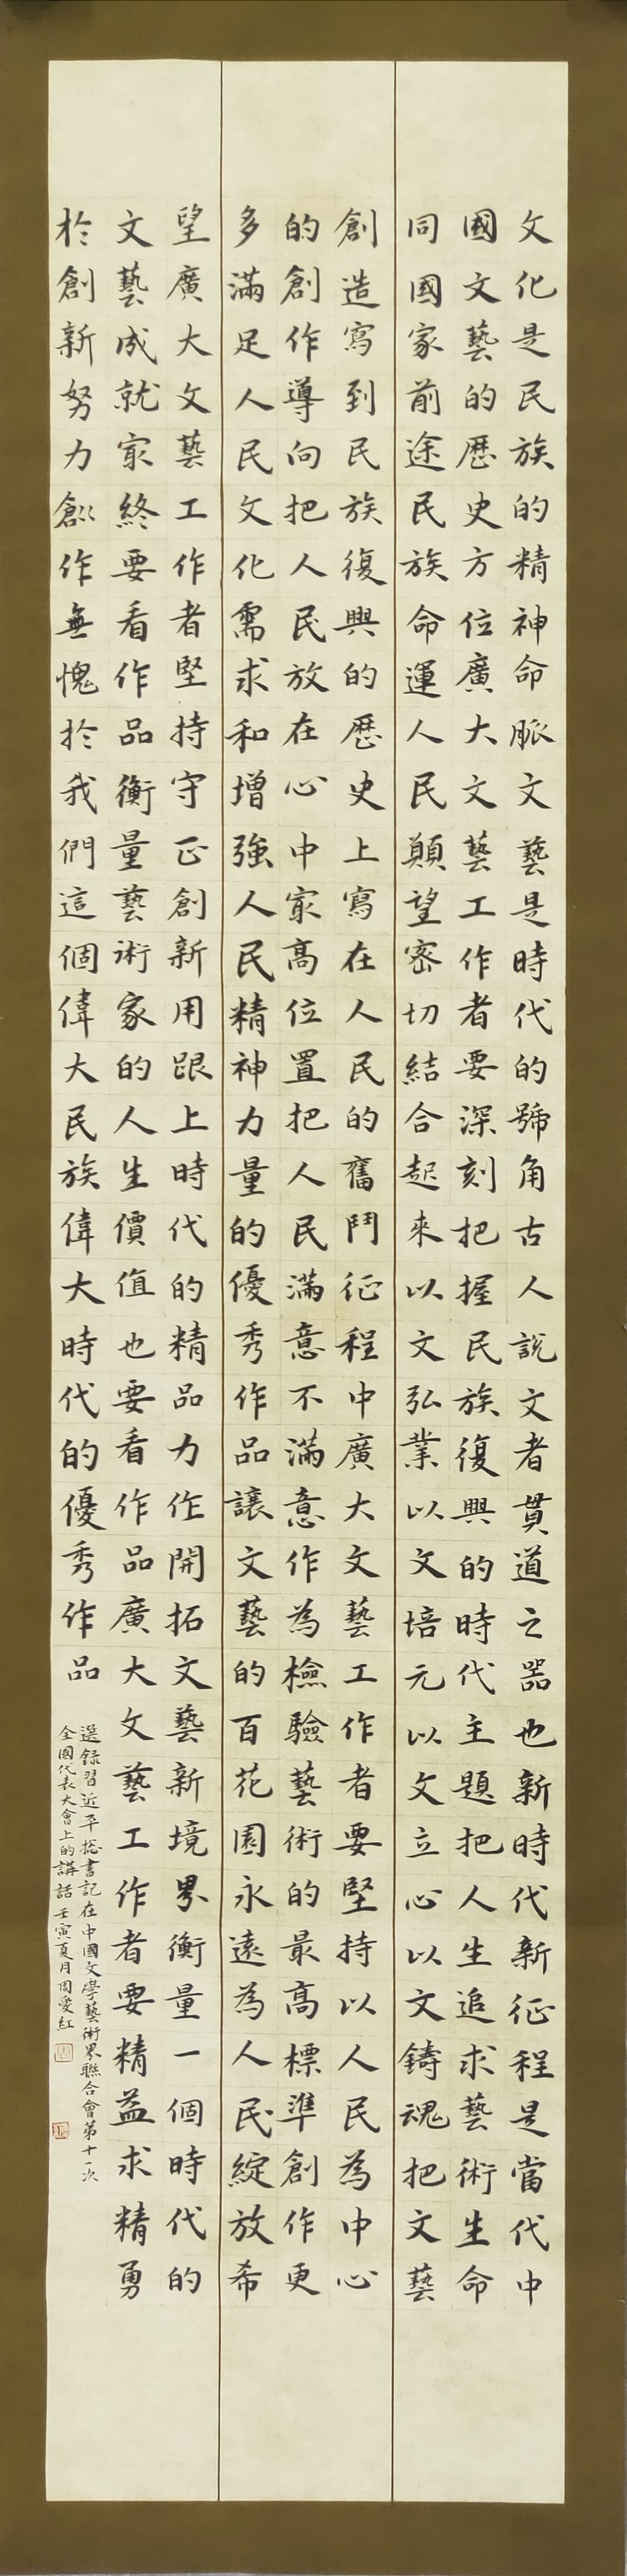 文化是民族的精神命脈文藝是時代的號角古人說文者貫道之器也新時代新征程是當代中
國文藝的歷史方位廣大文藝工作者要深刻把握民族復興的時代主題把人生追求藝術生命
同國家前途民族命運人民願望密切結合起來以文弘業以文培元以文立心以文鑄魂把文藝
創造寫到民族復興的歷史上寫在人民的奮鬥征程中廣大文藝工作者要堅持以人民為中心
的創作導向把人民放在心中最高位置把人民滿意不滿意作為檢驗藝術的最高標準創作更
多滿足人民文化需求和增強人民精神力量的優秀作品讓文藝的百花園永遠為人民綻放希
望廣大文藝工作者堅持守正創新用跟上時代的精品力作開拓文藝新境界衡量一個時代的
文藝成就最終要看作品衡量藝術家的人生價值也要看作品廣大文藝工作者要精益求精勇
於創新努力創作無愧於我們這個偉大民族偉大時代的優秀作品
選錄習近平總書記在中國文學藝術界聯合會第十一次
全國代表大會上的講話壬寅夏月周愛紅